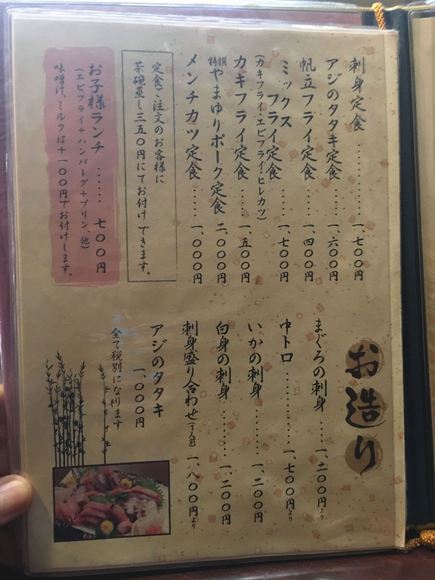 刺身定食……一、七〇〇円
アジのタタキ定食……一、六〇〇円
帆立フライ定食……一、四〇〇円
ミックスフライ定食……一、七〇〇円
(カキフライ・エビフライ・ヒレカツ)
カキフライ定食……一、五〇〇円
特撰やまゆりポーク定食 二、〇〇〇円
メンチカツ定食……一、〇〇〇円
定食ご注文のお客様に
茶碗蒸し三五〇円にてお付けできます。
お子様ランチ……七〇〇円
(エビフライ+ハンバーグ+プリン、他)
味噌汁、ミルクは+一〇〇円でお付けします。
お造り
まぐろの刺身……一、二〇〇円より
中トロ……一、七〇〇円より
いかの刺身……一、二〇〇円
白身の刺身……一、二〇〇円
刺身盛り合わせ(一人前) 一、八〇〇円より
アジのタタキ
一、〇〇〇円
全て税別になります